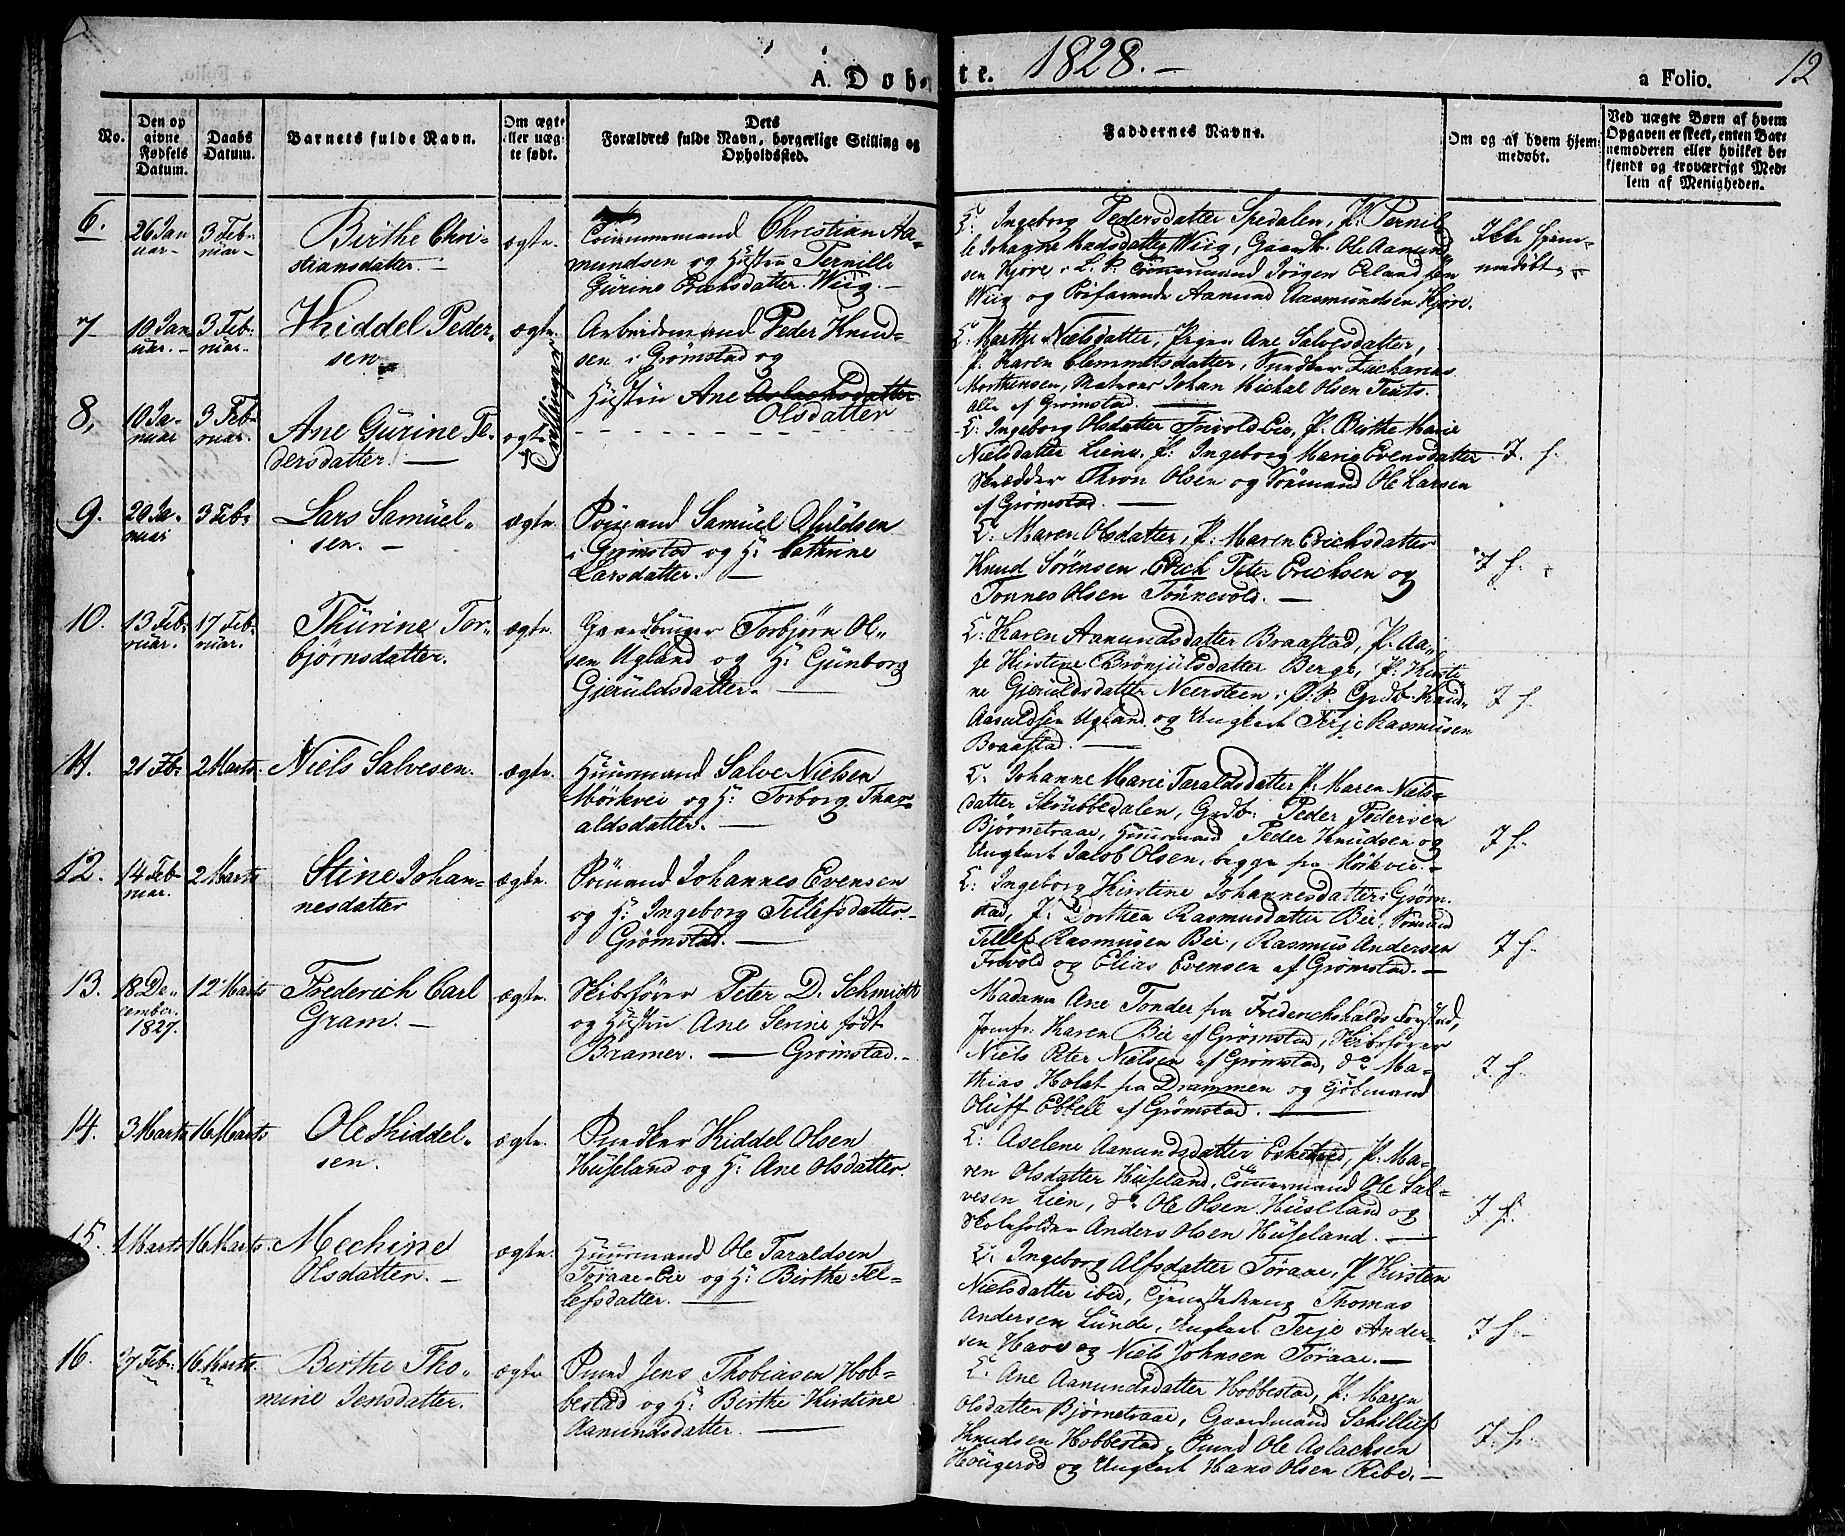 A. Døbte. 1828. — a Folio. 12
No. | Den opgivne Fødsels Datum. | Daabs Datum. | Barnets fulde Navn. | Om ægte eller uægte født. | Dets Forældres fulde Navn, borgerlige Stilling og Opholdssted. | Faddernes Navne. | Om og af hvem hjemmedøbt. | Ved uægte Børn af hvem Opgaven er skeet, enten Barnemoderen eller hvilket bekjendt og troværdigt Medlem af Menigheden.
6. 26 Januar 3 Februar
Birthe Christiansdatter. —
ægte.
Christian Aamundsen og Hustru Pernille
Gurine Erichsdatter Wiig. —
Ingeborg Pedersdatter Spedalen, P. Pernille
Johanne Madsdatter Wiig, Gaardb. Ole Aanundsen
Kjøre, Jørgen Eeland fra
Wiig og Aamund Aasmundsen Kjøre.
Ikke hjemmedøbt
7 10 Januar. 3 Februar.
Kiddel Pedersen
ægte.
Tvillinger
Arbeidsmand Peder Knudsen
i Grømstad og
Hustru Ane Aslachsdatter
Olsdatter
Marthe Nielsdatter, Pigen Ane Salvesdatter,
P. Karen Clemmetsdatter, Snedker Zacharias
Morthensen, Matros Johan Michal Olsen
Alle af Grømstad.
8, 10 Januar 3 Februar.
Ane Gurine Pedersdatter. —
ægte
Ingeborg Olsdatter Frivold Eie, P. Birthe Marie
Nielsdatter Lien, P. Ingeborg Marie Evensdatter
Skrædder Thron Olsen og Sømand Ole Larsen
af Grømstad. —
I. h.
9. 20 Januar 3 Feb.
Lars Samuelsen. —
ægte.
Sømand Samuel Olufsen
i Grimstad og H: Cathrine
Larsdatter. —
Maren Olsdatter, P. Maren Erichsdatter
Knud Sørensen, Erich Peter Erichsen og
Tønnes Olsen Tønnevold. —
I h.
10. 13 Februar. 17 Februar.
Thurine Torbjørnsdatter.
ægte.
Gaardbruger Torbjørn Olsen
Ugland og H: Gunborg
Gjeruldsdatter. —
Karen Aamundsdatter Braastad, P. Aase
Kirstine Brønjulsdatter Berge, P. Kirstine
Gjeruldsdatter Neersteen, Grdb. Knud
Aasuldsen Ugland og Ungkarl Terje Rasmusen
Braastad. —
I h.
11. 21 Feb. 2 Marts.
Niels Salvesen.
ægte.
Huusmand Salve Nielsen
Mørkvei og H: Torborg Tharaldsdatter. —
Johanne Marie Taraldsdatter P. Maren Nielsdatter
Skubbedalen, Grdb. Peder Pedersen
Bjørnetraae, Huusmand Peder Knudsen og
Ungkarl Jacob Olsen, begge fra Mørkvei. —
I h.
12. 14 Februar. 2 Marts
Stine Johannesdatter
ægte.
Sømand Johannes Evensen
og H: Ingeborg Tellefsdatter. —
Grømstad. —
Ingeborg Kirstine Johannesdatter, Grømstad,
P. Dorthea Rasmusdatter Bie, Sømand
Tellef Rasmusen Bie, Rasmus Andersen
Frivold og Elias Evensen af Grømstad. —
I h.
13. 18 December. 1827. 12 Marts
Frederich Carl
Gram. —
ægte.
Skibsfører Peter D. Schmidt
og Hustru Ane Serine født
Bramer. — Grømstad. —
Madame Ane Tonder fra Frederichshalds Forstad,
Jomfr. Karen Bie af Grømstad, Skibsfører
Niels Peter Nielsen af Grømstad, do Mathias
Holst fra Drammen og Kjøbmand
Oluff Ebbell af Grømstad. —
I. h.
14. 3 Marts 16 Marts
Ole Kiddelsen.
ægte.
Snedker Kiddel Olsen
Huseland og H: Ane Olsdatter.
Aselene Aanundsdatter Eskedal, P. Maren
Olsdatter Huseland, Ole Salvesen
Lien, do Ole Olsen Huseland og
Skoleholder Anders Olsen Huseland. —
I h.
15. 1 Marts 16 Marts.
Mechine
Olsdatter. —
ægte.
Huusmand Ole Taraldsen
Toraae Eie og H: Birthe Tellefsdatter. —
Ingeborg Alfsdatter Toraae, P. Kirsten
Nielsdatter ibid, Thomas
Andersen Lunde, Ungkarl Terje Andersen
Haave og Niels Johnsen Toraae. —
I h.
16. 27 Feb. 16 Marts.
Birthe Thomine
Jensdatter.
ægte
Jens Thobiasen Hobbestad
og H: Birthe Kirstine
Aamundsdatter. —
Ane Aanundsdatter Hobbestad, P. Maren
Olsdatter Bjørnetraae, Gaardmand
Knudsen Hobbestad, Ole Aslachsen
Hougerød og Ungkarl Hans Olsen Ribe. —
I. h.